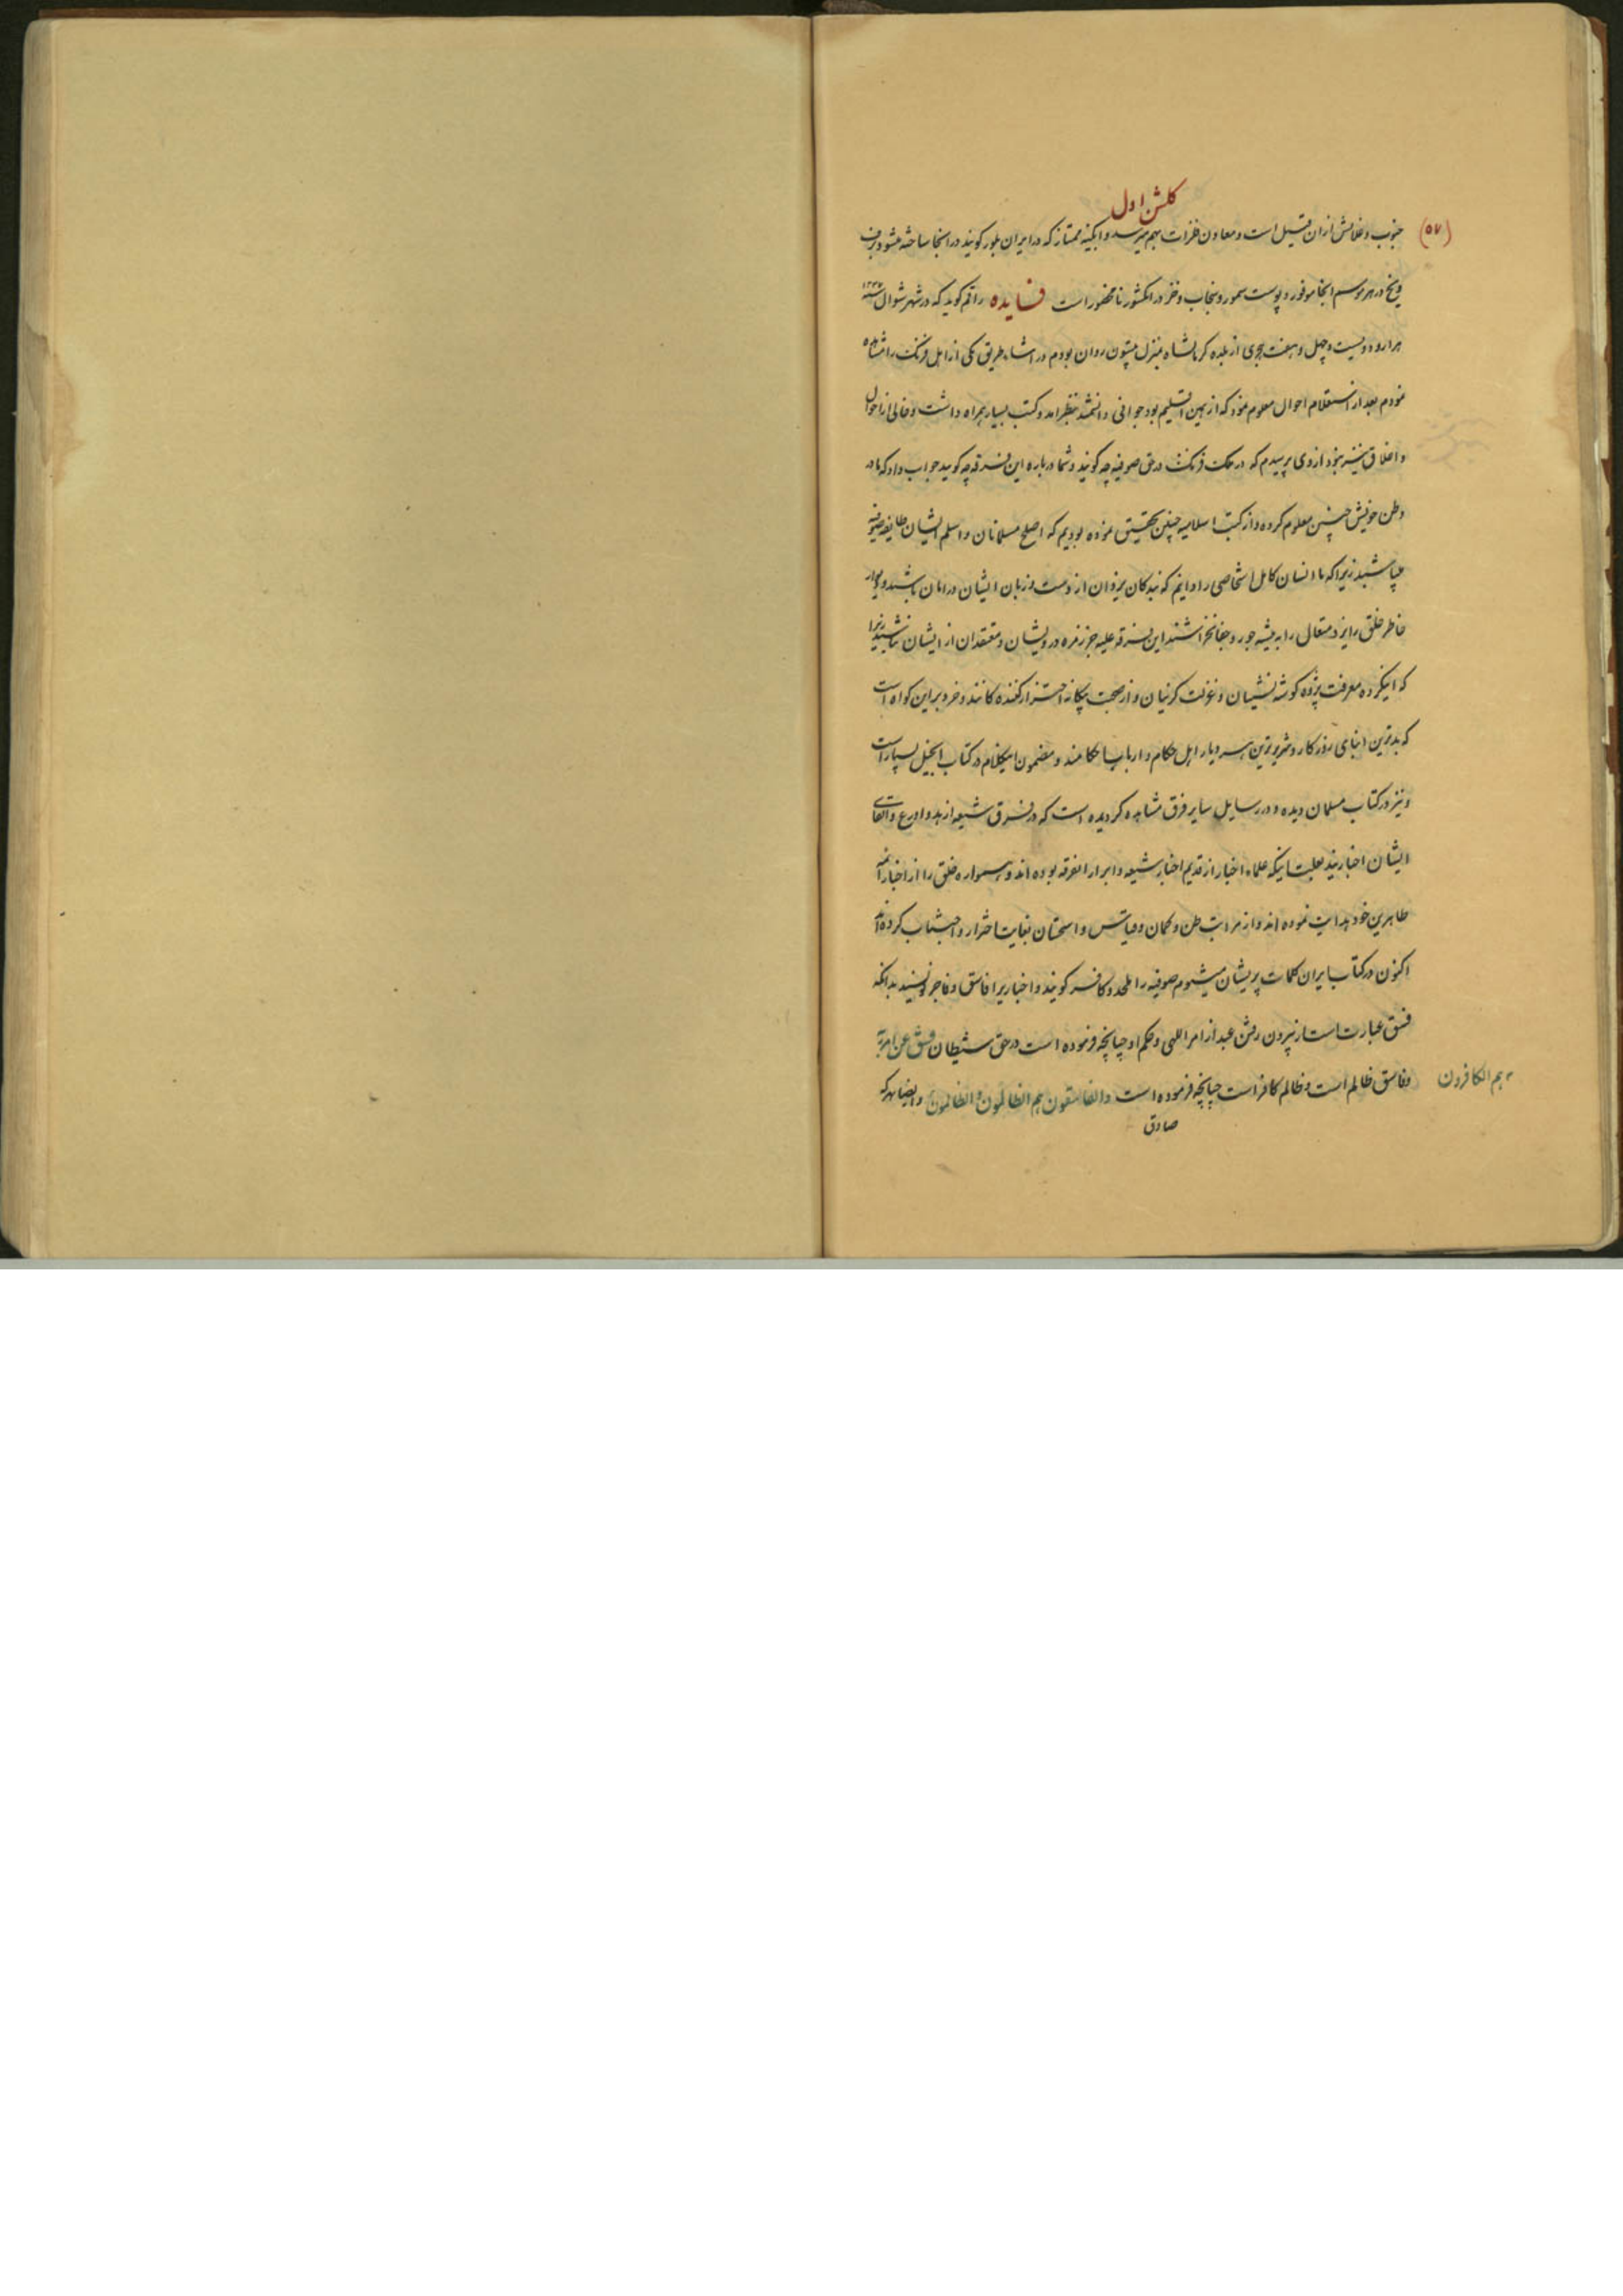 کلشن اول
(۵۷)
جنوب و نفایش از ان قبیل است و معاون فلزات بهم میرسد و ابکینه ممتاز که در ایران بلور کویند در انجا ساخته میشود و برف
و یخ در هر موسم انجا موفور و پوست سمور و سنجاب و خز در انکشور نامحصور است فایده راقم کوید که در شهر شوال سنه ۱۲۴۷
هزار و دویست و چهل و هفت هجری از بلده کرمانشاه بمنزل بیستون روان بودم در اثناء طریق یکی از اهل فرنک را مشاهده
نمودم بعد از استعلام احوال معلوم نمود که از همین اقلیم بود جوانی دانشمند بنظر امد و کتب بسیار همراه داشت و خالی از احوال
و اخلاق نیز نبود از وی پرسیدم که در ملک فرنک در حق صوفیه چه کویند و شما درباره این فرقه چه کویید جواب داد که ما در
وطن خویش چنین معلوم کرده و از کتب اسلامیه چنین تحقیق نموده بودیم که اصلح مسلمانان و اسلم ایشان طایفه صوفیه
میباشند زیرا که ما انسان کامل اشخاصی را دانیم که بندکان یزدان از دست و زبان ایشان در امان باشند و
خاطر خلق ایزد متعال را به تیشه جور و جفا نخراشند این فرقه علیه جز زمره درویشان و معتقدان از ایشان نباشند زیرا
که اینکروه معرفت پژوه کوشه نشینان و عزلت کزینان و از صحبت بیکانه احتراز کننده کانند و خرد بر این کواه است
که بدترین ابنای روزکار و شریرترین هر دیار اهل حکام و ارباب احکامند و مضمون اینکلام در کتاب انجیل بسیار است
و نیز در کتاب مسلمان دیده و در رسایل سایر فرق مشاهده کردیده است که در فرق شیعه ازهد و اورع و اتقای
ایشان اخباریند بعلت اینکه علماء اخبار از قدیم اخیار شیعه و ابرار انفرقه بوده اند و همواره خلق را از اخبار ائمه
طاهرین خود هدایت نموده اند و از مراتب ظن و کمان و قیاس و استحسان بغایت احتراز و اجتناب کرده اند
اکنون در کتاب ایران کلمات پریشان میشنوم صوفیه را ملحد و کافر کویند و اخباریرا فاسق و فاجر نویسند بدانکه
فسق عبارت است از بیرون رفتن عبد از امر اللهی و حکم او چنانچه فرموده است در حق شیطان ففسق عن امر ربه
و فاسق ظالم است و ظالم کافر است چنانچه فرموده است والفاسقون هم الظالمون والظالمون و ایضا هر که
هم الکافرون
صادق